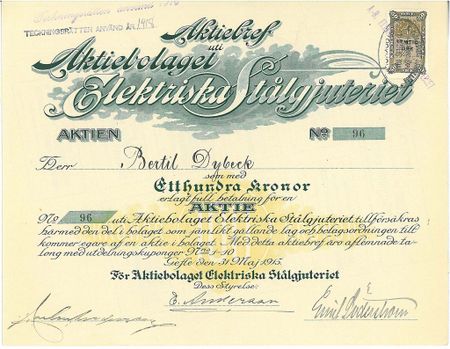 TECKNINGSRÄTTEN ANVÄND ÅR 1919
Aktiebref
uti
Aktiebolaget
Elektriska Stålgjuteriet
AKTIEN No 96
Herr Bertil Dybeck
som med
Etthundra Kronor
erlagt full betalning för en
AKTIE
No 96 uti Aktiebolaget Elektriska Stålgjuteriet tillförsäkras
härmed den del i bolaget som jämlikt gällande lag och bolagsordningen till-
kommer egare af en aktie i bolaget. Med detta aktiebref äro aflemnade ta-
long med utdelningskuponger No 1-10
Gefle den 31 Maj 1915.
För Aktiebolaget Elektriska Stålgjuteriet
Dess Styrelse:
E. Anderson